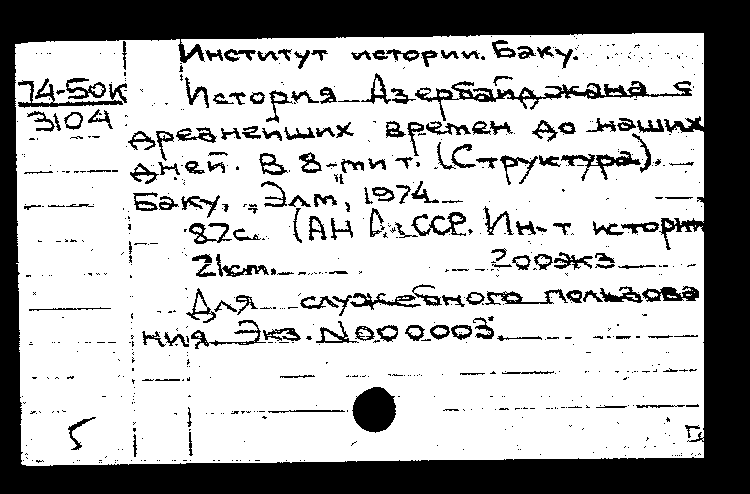 Институт истории. Баку.
74-50к
3104
История Азербайджана с
древнейших времен до наших
дней. В 8-ми т. (Структура).
Баку, "Элм", 1974
87с. (АН АзССР. Ин-т истории
21cm. 200экз
Для служебного пользова
ния. Экз. N000003.
5